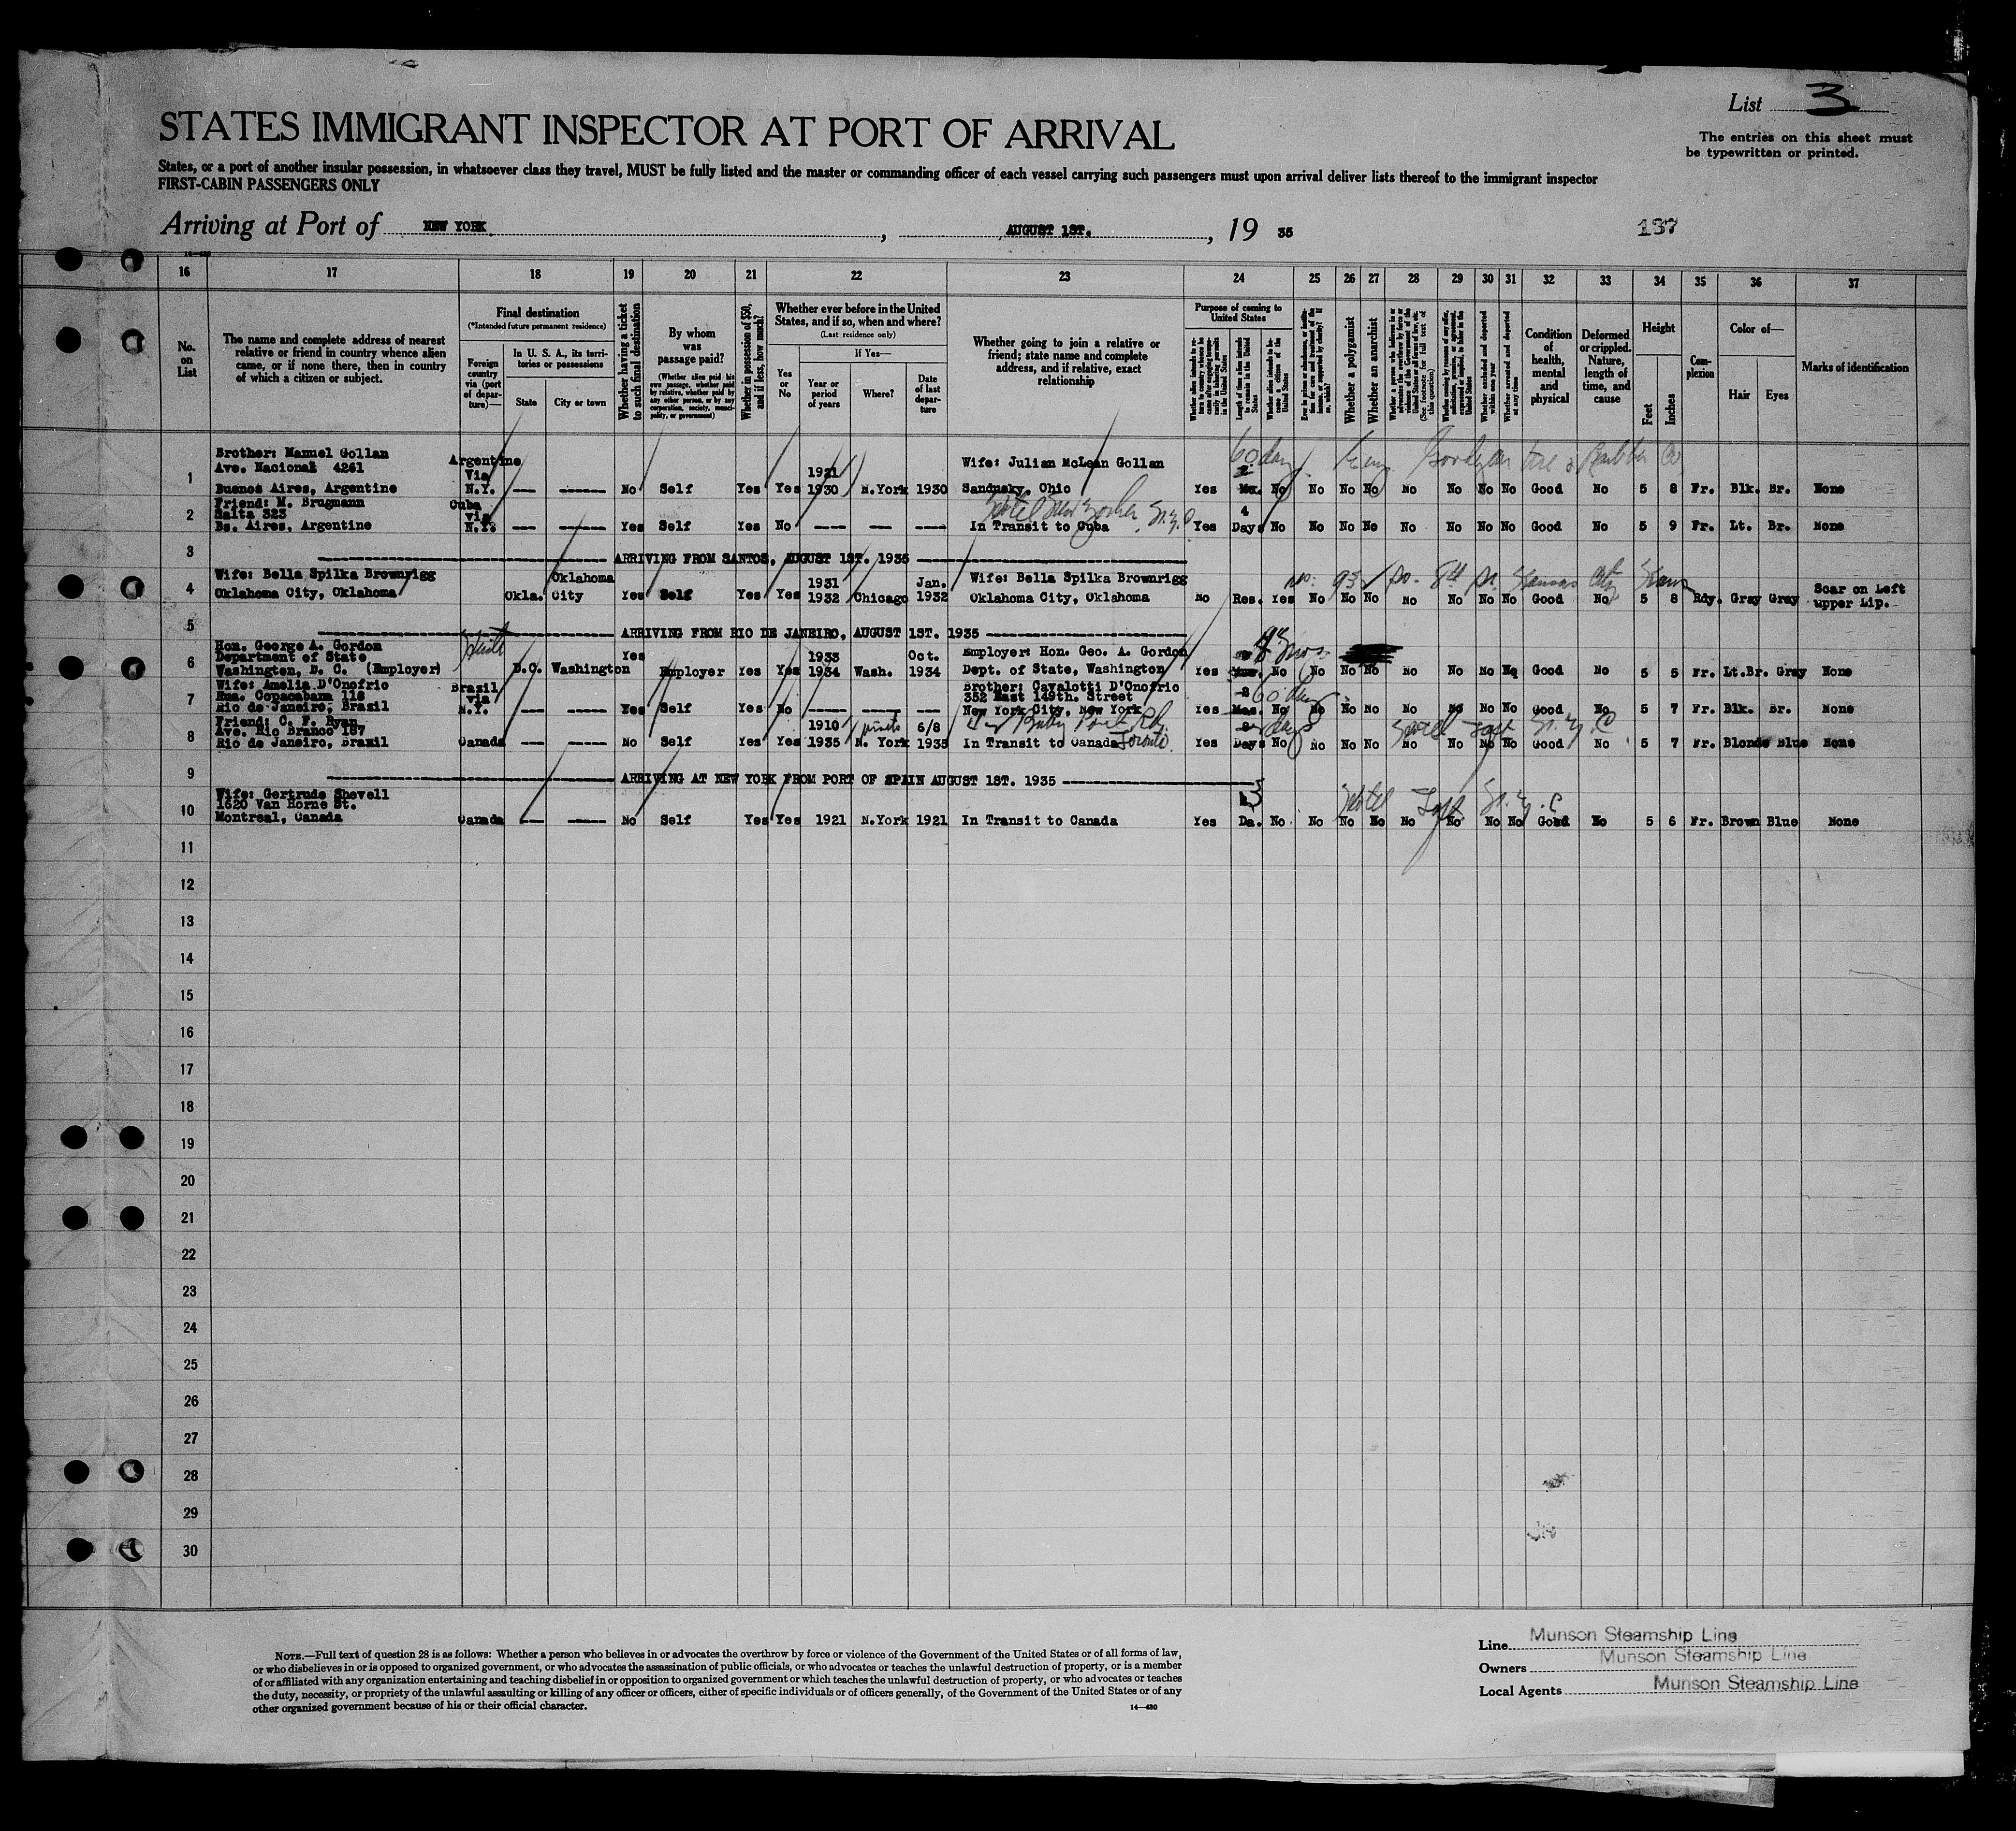 List 3
STATES IMMIGRANT INSPECTOR AT PORT OF ARRIVAL
The entries on this sheet must
be typewritten or printed.
States, or a port of another insular possession, in whatsoever class they travel, MUST be fully listed and the master or commanding officer of each vessel carrying such passengers must upon arrival deliver lists thereof to the immigrant inspector
FIRST-CABIN PASSENGERS ONLY
Arriving at Port of NEW YORK, AUGUST 1ST., 19 35
137
16 17 18 19 20 21 22 23 24 25 26 27 28 29 30 31 32 33 34 35 36 37
No. on List
The name and complete address of nearest relative or friend in country whence alien came, or if none there, then in country of which a citizen or subject.
Final destination
(*Intended future permanent residence)
Foreign country via (port of departure)—
In U. S. A., its territories or possessions
State
City or town
Whether having a ticket to such final destination
By whom was passage paid?
(Whether alien paid his own passage, whether paid by relative, whether paid by any other person, or by any corporation, society, municipality, or government)
Whether in possession of $50, and if less, how much?
Whether ever before in the United States, and if so, when and where?
(Last residence only)
Yes or No
If Yes—
Year or period of years
Where?
Date of last departure
Whether going to join a relative or friend; state name and complete address, and if relative, exact relationship
Purpose of coming to United States
Length of time alien intends to remain in the United States
Whether alien intends to become a citizen of the United States
Whether a polygamist
Whether an anarchist
(See footnote for full text of this question)
Whether excluded and deported within one year
Whether arrested and deported at any time
Condition of health, mental and physical
Deformed or crippled. Nature, length of time, and cause
Height
Feet
Inches
Complexion
Color of—
Hair
Eyes
Marks of identification
60 days Goodyear Tire & Rubber Co
Brother: Manuel Gollan
Ave. Nacional 4261
1 Buenos Aires, Argentine Argentine Via N.Y. — — No Self Yes Yes 1921 1930 N.York 1930 Wife: Julian McLean Gollan Sandusky, Ohio Yes 2 Mo. No No No No No No No No Good No 5 8 Fr. Blk. Br. None
Friend: M. Brugmann
Salta 323
2 Bs. Aires, Argentine Cuba via N.Y. — — Yes Self Yes No — — — In Transit to Cuba Yes 4 Days No No No No No No No No Good No 5 9 Fr. Lt. Br. None
Hotel New Yorker N.Y.C
3 ARRIVING FROM SANTOS, AUGUST 1ST. 1935
Wife: Bella Spilka Brownrigg
4 Oklahoma City, Oklahoma Okla. Oklahoma City Yes Self Yes Yes 1931 1932 Chicago Jan. 1932 Wife: Bella Spilka Brownrigg Oklahoma City, Oklahoma No Res. Yes No No No No No No No Good No 5 8 Rdy. Gray Gray Scar on Left upper Lip.
So. 8th St. Kansas City Kans
5 ARRIVING FROM RIO DE JANEIRO, AUGUST 1ST. 1935
Hon. George A. Gordon
Department of State
6 Washington, D. C. (Employer) D.C. Washington Yes Employer Yes Yes 1933 1934 Wash. Oct. 1934 Employer: Hon. Geo. A. Gordon Dept. of State, Washington Yes No No No No No No No No Good No 5 5 Fr. Lt.Br. Gray None
Wife: Amelia D'Onofrio
Rua. Copacabana 118
7 Rio de Janeiro, Brazil Brazil via N.Y. — — Yes Self Yes No — — — Brother: Cavalotti D'Onofrio 352 East 149th. Street New York City, New York Yes Mos. No No No No No No No No Good No 5 7 Fr. Blk. Br. None
60 days
Friend: C. F. Ryan
Ave. Rio Branco 187
8 Rio de Janeiro, Brazil Canada — — No Self Yes Yes 1910 1935 N. York 6/8 1935 In Transit to Canada Toronto Yes Days No No No No No No No No Good No 5 7 Fr. Blonde Blue None
Hotel Taft N.Y.C
9 ARRIVING AT NEW YORK FROM PORT OF SPAIN AUGUST 1ST. 1935
Wife: Gertrude Shevell
1620 Van Horne St.
10 Montreal, Canada Canada — — No Self Yes Yes 1921 N.York 1921 In Transit to Canada Yes 3 Da. No No No No No No No No Good No 5 6 Fr. Brown Blue None
Hotel Taft N.Y.C
11
12
13
14
15
16
17
18
19
20
21
22
23
24
25
26
27
28
29
30
NOTE.—Full text of question 28 is as follows: Whether a person who believes in or advocates the overthrow by force or violence of the Government of the United States or of all forms of law,
or who disbelieves in or is opposed to organized government, or who advocates the assassination of public officials, or who advocates or teaches the unlawful destruction of property, or is a member
of or affiliated with any organization entertaining and teaching disbelief in or opposition to organized government or which teaches the unlawful destruction of property, or who advocates or teaches
the duty, necessity, or propriety of the unlawful assaulting or killing of any officer or officers, either of specific individuals or of officers generally, of the Government of the United States or of any
other organized government because of his or their official character.
14—430
Line Munson Steamship Line
Owners Munson Steamship Line
Local Agents Munson Steamship Line